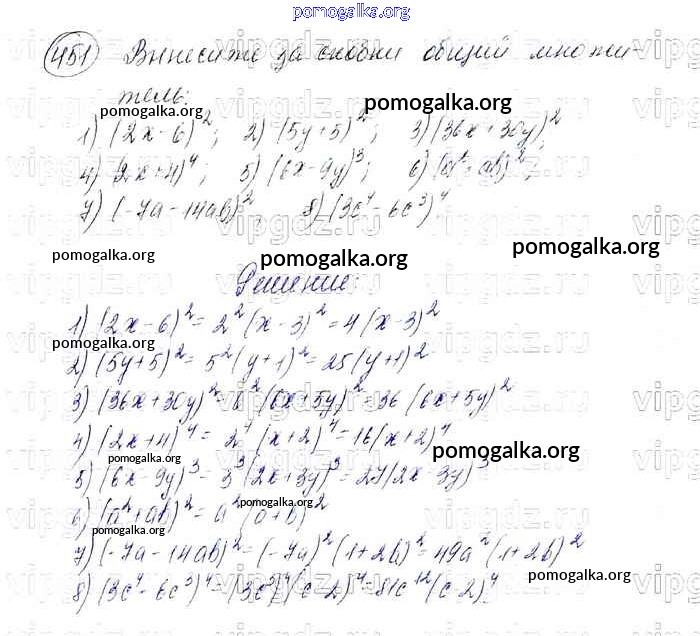 pomogalka.org
451) Вынесите за скобки общий множи-
тель:
pomogalka.org pomogalka.org
1) (2x-6)²; 2) (5y+5)²; 3) (36x+30y)²;
4) (2x+4)⁴; 5) (6x-9y)³; 6) (a²+ab)²;
7) (-7a-14ab)² 8) (3c⁴-6c³)⁴
pomogalka.org pomogalka.org pomogalka.org
Решение:
1) (2x-6)² = 2²(x-3)² = 4(x-3)²
pomogalka.org
2) (5y+5)² = 5²(y+1)² = 25(y+1)²
3) (36x+30y)² = 6²(6x+5y)² = 36(6x+5y)²
4) (2x+4)⁴ = 2⁴(x+2)⁴ = 16(x+2)⁴
pomogalka.org pomogalka.org
5) (6x-9y)³ = 3³(2x+3y)³ = 27(2x-3y)³
6) (a²+ab)² = a²(a+b)²
pomogalka.org pomogalka.org
7) (-7a-14ab)² = (-7a)²(1+2b)² = 49a²(1+2b)²
8) (3c⁴-6c³)⁴ = (3c³)⁴(c-2)⁴ = 81c¹²(c-2)⁴
pomogalka.org